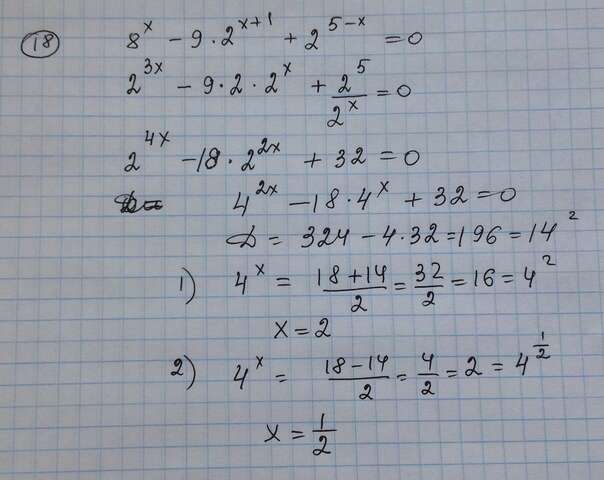 18
8^x - 9·2^{x+1} + 2^{5-x} = 0
2^{3x} - 9·2·2^x + \frac{2^5}{2^x} = 0
2^{4x} - 18·2^{2x} + 32 = 0
4^{2x} - 18·4^x + 32 = 0
D = 324 - 4·32 = 196 = 14^2
1) 4^x = \frac{18+14}{2} = \frac{32}{2} = 16 = 4^2
x = 2
2) 4^x = \frac{18-14}{2} = \frac{4}{2} = 2 = 4^{\frac{1}{2}}
x = \frac{1}{2}